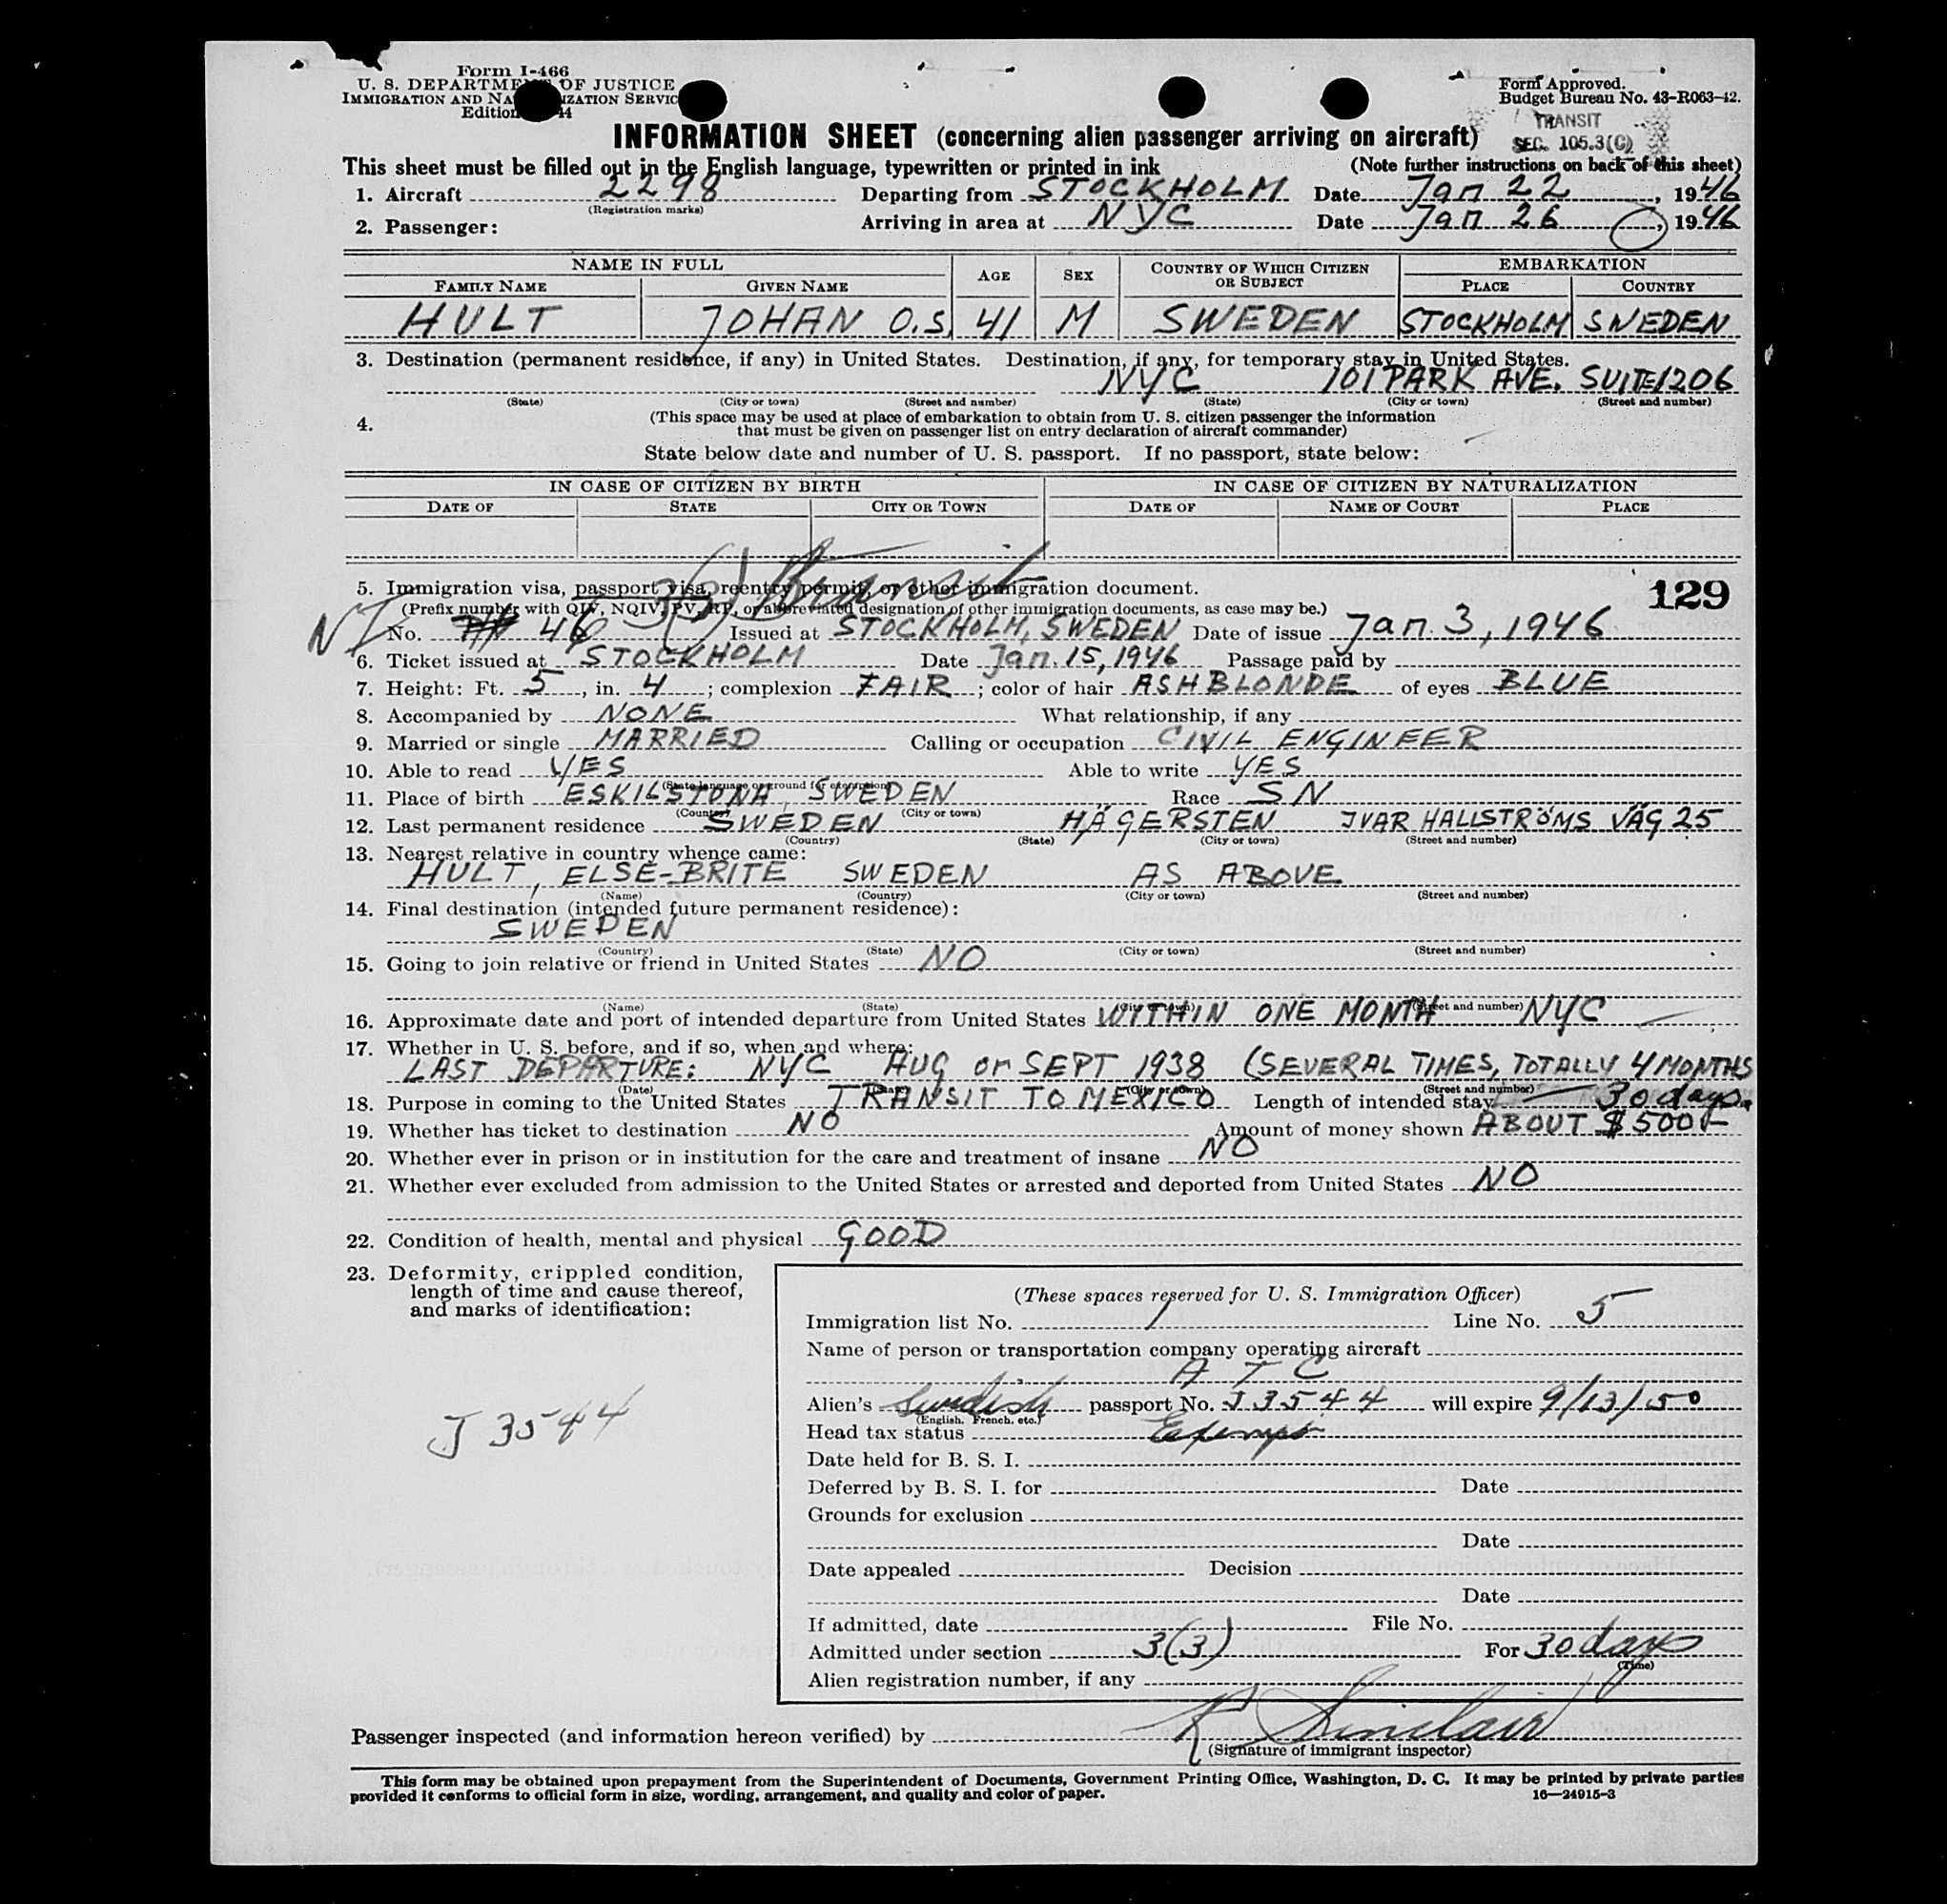 Form I-466
U. S. DEPARTMENT OF JUSTICE
IMMIGRATION AND NATURALIZATION SERVICE
Edition 44
Form Approved.
Budget Bureau No. 43-R063-42.
TRANSIT
SEC. 105.3(C)
INFORMATION SHEET (concerning alien passenger arriving on aircraft)
This sheet must be filled out in the English language, typewritten or printed in ink (Note further instructions on back of this sheet)
1. Aircraft 2298 Departing from STOCKHOLM Date Jan 22, 1946
(Registration marks)
2. Passenger: Arriving in area at NYC Date Jan 26, 1946
NAME IN FULL AGE SEX COUNTRY OF WHICH CITIZEN OR SUBJECT EMBARKATION
FAMILY NAME GIVEN NAME PLACE COUNTRY
HULT JOHAN O.S. 41 M SWEDEN STOCKHOLM SWEDEN
3. Destination (permanent residence, if any) in United States. Destination, if any, for temporary stay in United States.
NYC 101 PARK AVE. SUITE 1206
(State) (City or town) (Street and number) (State) (City or town) (Street and number)
4. (This space may be used at place of embarkation to obtain from U. S. citizen passenger the information
that must be given on passenger list on entry declaration of aircraft commander)
State below date and number of U. S. passport. If no passport, state below:
IN CASE OF CITIZEN BY BIRTH IN CASE OF CITIZEN BY NATURALIZATION
DATE OF STATE CITY OR TOWN DATE OF NAME OF COURT PLACE
3(3) transit
5. Immigration visa, passport visa, reentry permit, or other immigration document.
129
(Prefix number with QIV, NQIV, PV, RP, or abbreviated designation of other immigration documents, as case may be.)
No. 46 Issued at STOCKHOLM, SWEDEN Date of issue Jan. 3, 1946
6. Ticket issued at STOCKHOLM Date Jan. 15, 1946 Passage paid by
7. Height: Ft. 5, in. 4; complexion FAIR; color of hair ASHBLONDE of eyes BLUE
8. Accompanied by NONE What relationship, if any
9. Married or single MARRIED Calling or occupation CIVIL ENGINEER
10. Able to read YES Able to write YES
(State language or ground for exemption)
11. Place of birth ESKILSTUNA, SWEDEN Race SN
(Country) (City or town)
12. Last permanent residence SWEDEN HÄGERSTEN IVAR HALLSTRÖMS VÄG 25
(Country) (State) (City or town) (Street and number)
13. Nearest relative in country whence came:
HULT, ELSE-BRITE SWEDEN AS ABOVE
(Name) (Country) (City or town) (Street and number)
14. Final destination (intended future permanent residence):
SWEDEN
(Country) (State) (City or town) (Street and number)
15. Going to join relative or friend in United States NO
(Name) (State) (City or town) (Street and number)
16. Approximate date and port of intended departure from United States WITHIN ONE MONTH NYC
17. Whether in U. S. before, and if so, when and where:
LAST DEPARTURE: NYC AUG or SEPT 1938 (SEVERAL TIMES, TOTALLY 4 MONTHS
(Date) (City or town) (Street and number)
18. Purpose in coming to the United States TRANSIT TO MEXICO Length of intended stay 30 days.
19. Whether has ticket to destination NO Amount of money shown ABOUT $500
20. Whether ever in prison or in institution for the care and treatment of insane NO
21. Whether ever excluded from admission to the United States or arrested and deported from United States NO
22. Condition of health, mental and physical GOOD
23. Deformity, crippled condition,
length of time and cause thereof,
and marks of identification:
J 3544
(These spaces reserved for U. S. Immigration Officer)
Immigration list No. 1 Line No. 5
Name of person or transportation company operating aircraft
A T C
Alien's Swedish passport No. J3544 will expire 9/13/50
(English, French, etc.)
Head tax status Exempt
Date held for B. S. I.
Deferred by B. S. I. for Date
Grounds for exclusion
Date
Date appealed Decision
Date
If admitted, date File No.
Admitted under section 3(3) For 30 days
(Time)
Alien registration number, if any
Passenger inspected (and information hereon verified) by R Sinclair
(Signature of immigrant inspector)
This form may be obtained upon prepayment from the Superintendent of Documents, Government Printing Office, Washington, D. C. It may be printed by private parties
provided it conforms to official form in size, wording, arrangement, and quality and color of paper. 16—24915-3